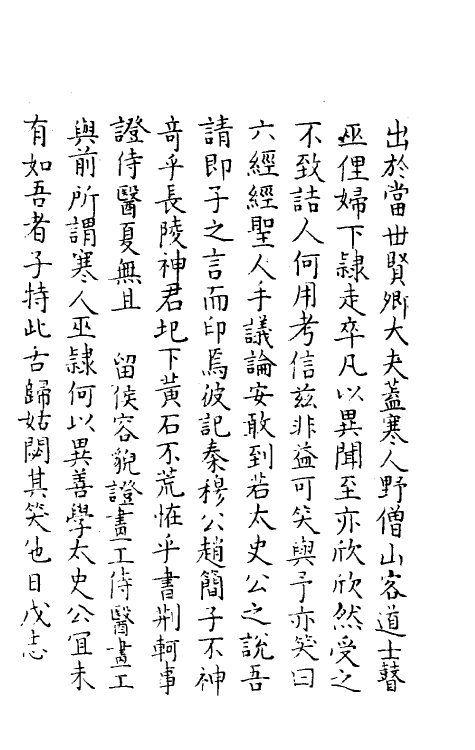 出於當世賢卿大夫蓋寒人野僧山客道士瞽
巫俚婦下隷走卒凡以異聞至亦欣欣然受之
不致詰人何用考信茲非益可笑與予亦笑曰
六經經聖人手議論安敢到若太史公之說吾
請即子之言而印焉彼記秦穆公趙簡子不神
竒乎長陵神君圯下黃石不荒恠乎書荆軻事
證侍醫夏無且 留侯容貌證畫工侍醫畫工
與前所謂寒人巫隷何以異善學太史公冝未
有如吾者子持此舌歸姑閟其笑他日戊志